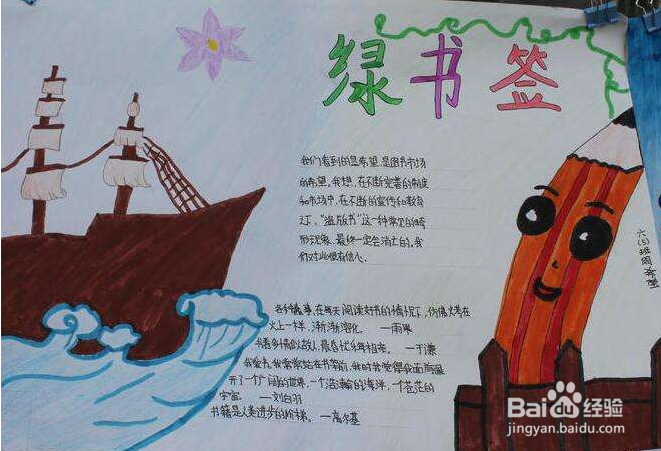 绿书签
我们看到的是希望，是图书市场
的希望。我想，在不断完善的制度
和市场中，在不断的宣传和教育
之下，“盗版书”这一种常见的畸
形现象，最终一定会消亡的。我
们对此很有信心。
各种蠢事，在每天阅读好书的情况下，仿佛烤在
火上一样，渐渐溶化。 —雨果
书卷多情似故人，晨昏忧乐每相亲。 —于谦
我爱书，我常常站在书架前，我时我觉得我面前展
开了一个广阔的世界，一个浩瀚的海洋，一个苍茫的
宇宙。 —刘白羽
书籍是人类进步的阶梯。—高尔基
六(5)班周
Baidu经验
jingyan.baidu.com